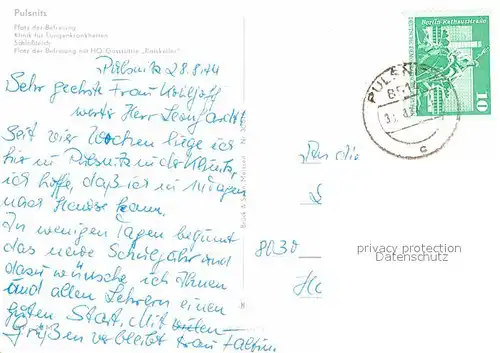 Pulsnitz
Platz der Befreiung
Klinik für Lungenkrankheiten
Schloßteich
Platz der Befreiung mit HO Gaststätte „Ratskeller"
Pulsnitz 28.8.74
Sehr geehrte Frau
werter Herr Leonhardt!
Seit vier Wochen liege ich
hier in Pulsnitz in der Klinik,
ich hoffe, daß ich in Tagen
nach Hause kann.
In wenigen Tagen beginnt
das neue Schuljahr und
dazu wünsche ich Ihnen
und allen Lehrern einen
guten Start. Mit vielen
Grüßen verbleibt Frau
Berlin-Rathausstraße
10
PULSNITZ
c
An die
8030
privacy protection
Datenschutz